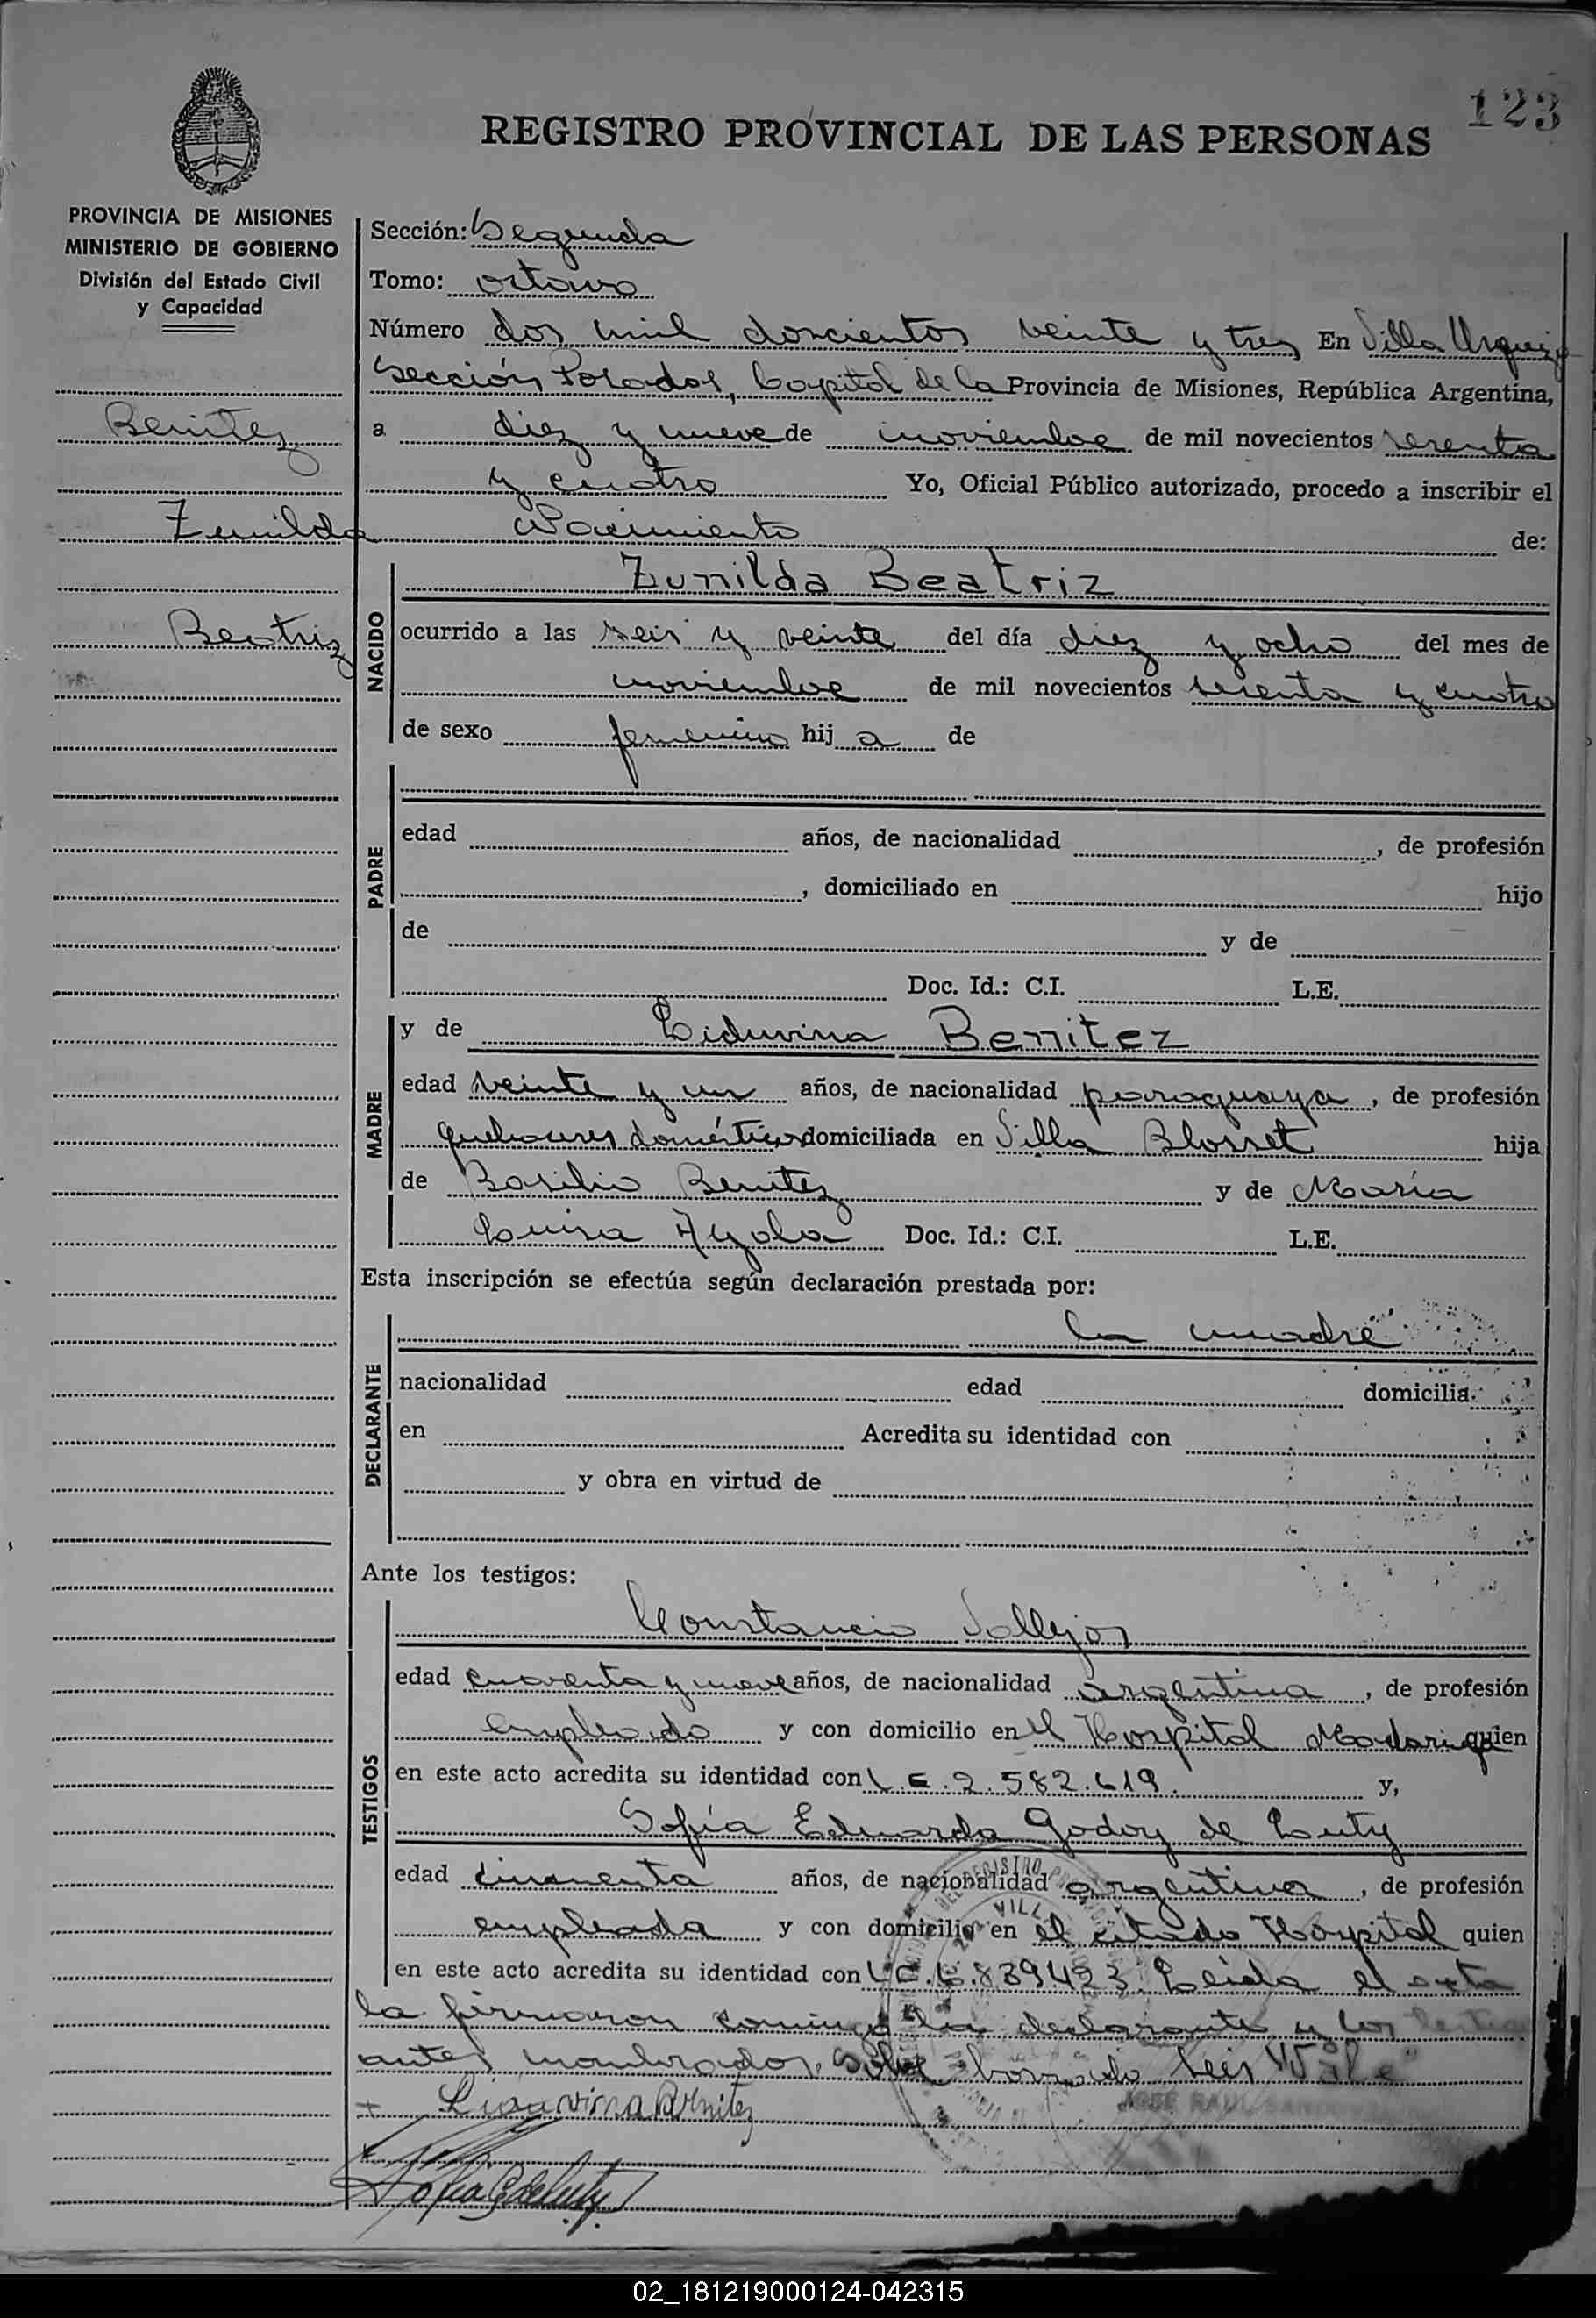 123
REGISTRO PROVINCIAL DE LAS PERSONAS
PROVINCIA DE MISIONES
MINISTERIO DE GOBIERNO
División del Estado Civil
y Capacidad
Benitez
Zunilda
Beatriz
Sección: Segunda
Tomo: octavo
Número dos mil doscientos veinte y tres En Villa Urquiza
Sección Posadas, Capital de la Provincia de Misiones, República Argentina,
a diez y nueve de noviembre de mil novecientos sesenta
y cuatro Yo, Oficial Público autorizado, procedo a inscribir el
Nacimiento de:
NACIDO
Zunilda Beatriz
ocurrido a las seis y veinte del día diez y ocho del mes de
noviembre de mil novecientos sesenta y cuatro
de sexo femenino hij a de
PADRE
edad años, de nacionalidad , de profesión
, domiciliado en hijo
de y de
Doc. Id.: C.I. L.E.
MADRE
y de Liduvina Benitez
edad veinte y un años, de nacionalidad paraguaya, de profesión
quehaceres domésticos domiciliada en Villa Blosset hija
de Basilio Benitez y de María
Luisa Ayala Doc. Id.: C.I. L.E.
Esta inscripción se efectúa según declaración prestada por:
DECLARANTE
la madre
nacionalidad edad domicilia
en Acredita su identidad con
y obra en virtud de
Ante los testigos:
TESTIGOS
Constancio Vallejos
edad cuarenta y nueve años, de nacionalidad argentina, de profesión
empleado y con domicilio en el Hospital Madariaga quien
en este acto acredita su identidad con L.E. 2.582.619. y,
Sofía Eduarda Godoy de Luty
edad cincuenta años, de nacionalidad argentina, de profesión
empleada y con domicilio en el citado Hospital quien
en este acto acredita su identidad con L.C. 6.839.423. Leída el acta
la firmaron conmigo la declarante y los
antes nombrados. Sobre borrado seis "Vale"
JOSE RAUL
Liduvina Benitez
Sofia G de Luty
02_181219000124-042315